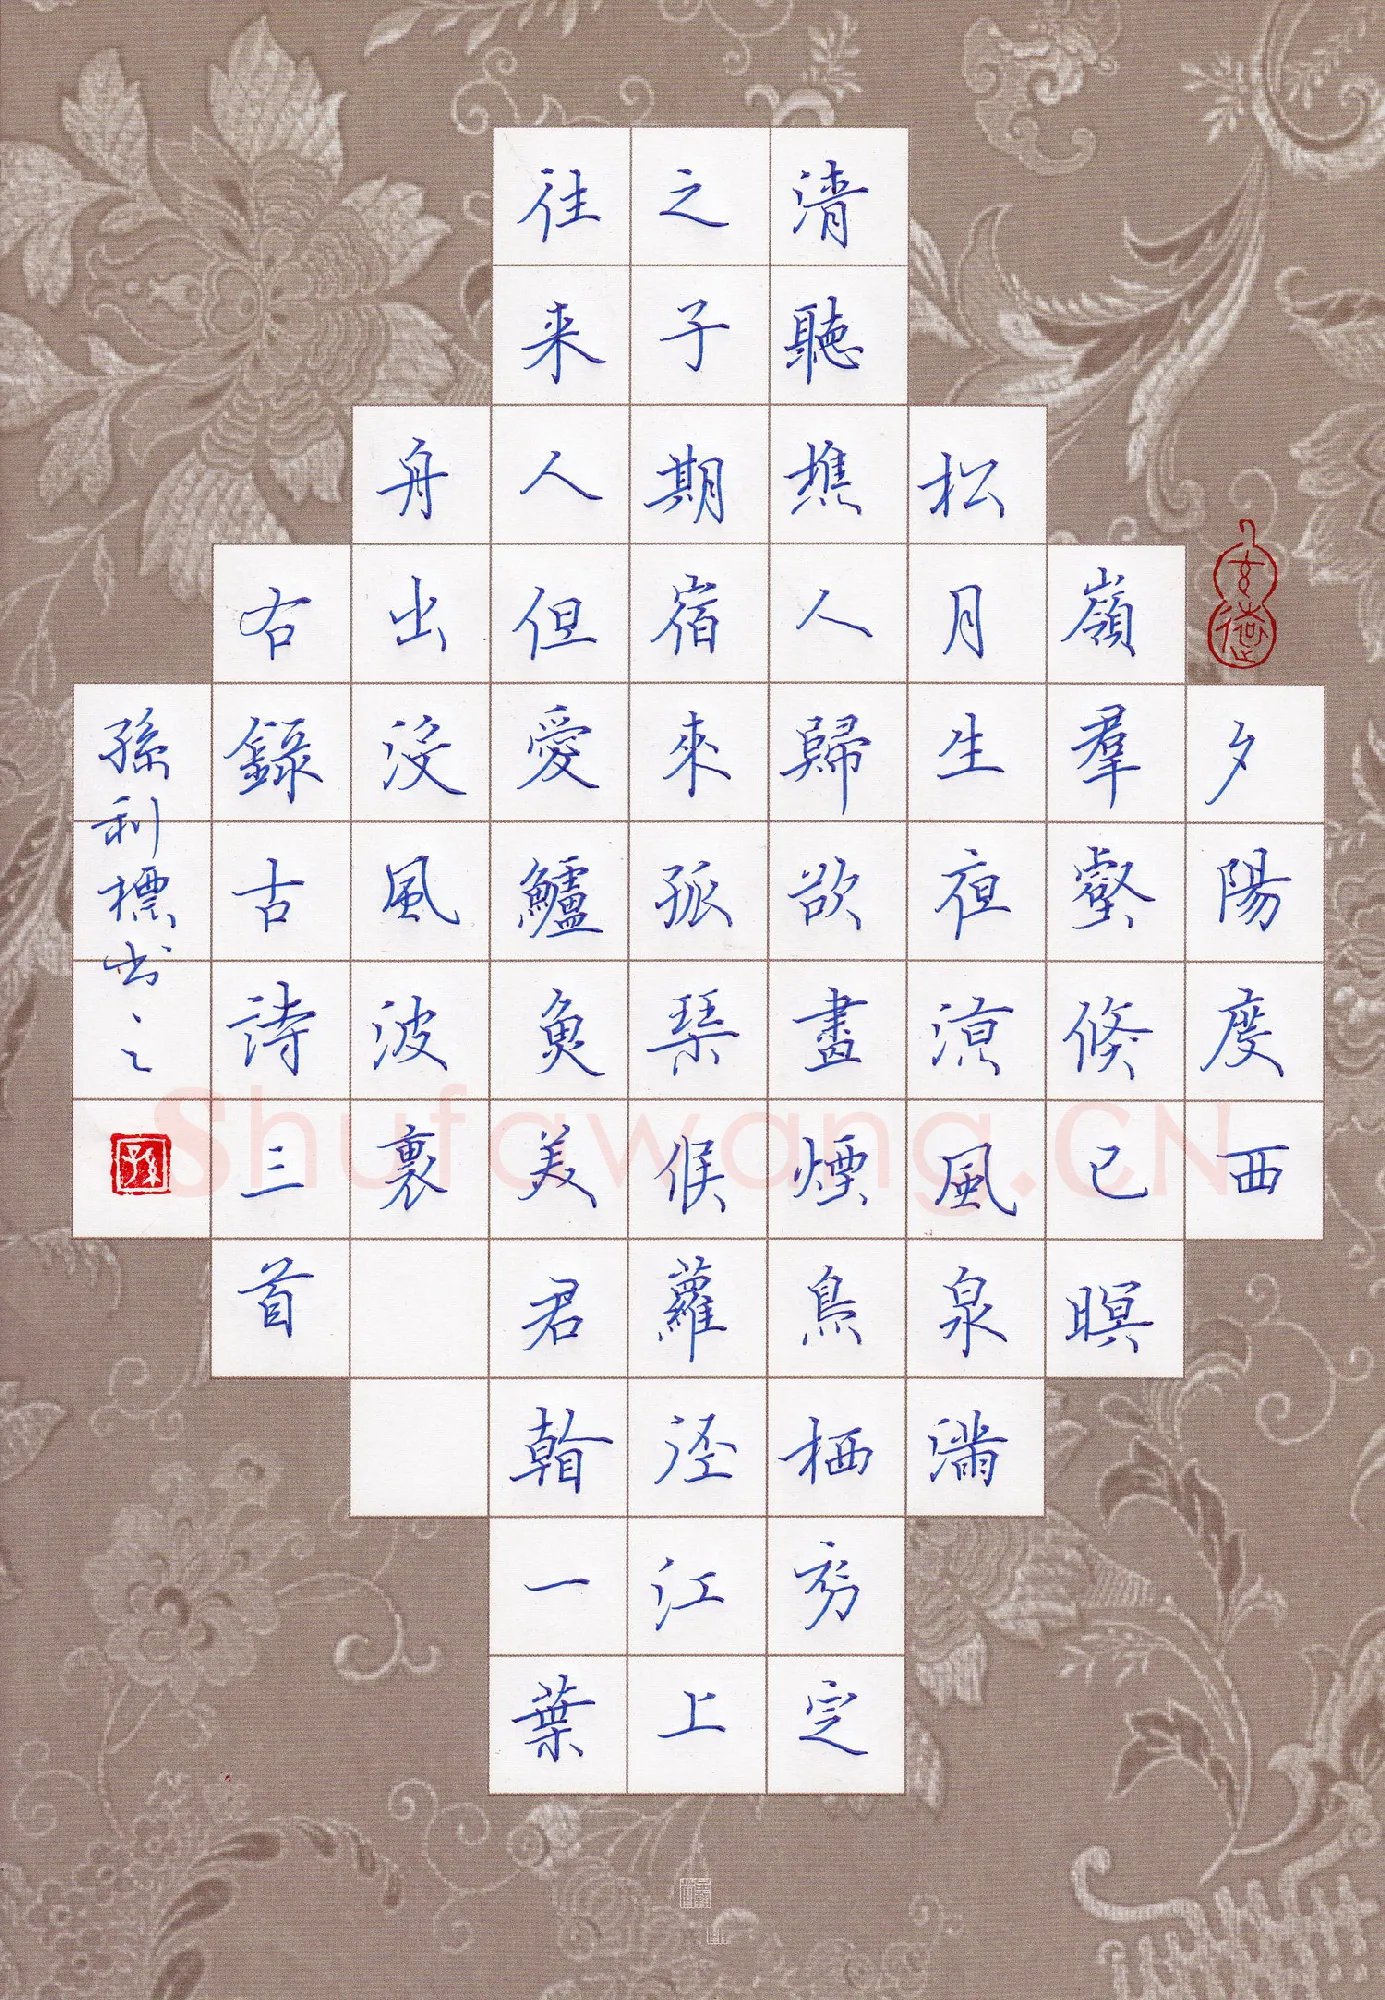 夕陽度西
嶺羣壑倏已暝
松月生夜涼風泉滿
清聽樵人歸欲盡煙鳥栖初定
之子期宿來孤琴候蘿徑江上
往来人但愛鱸魚美君看一葉
舟出沒風波裏
右錄古詩三首
孫利標书
孫
Shufawang.CN